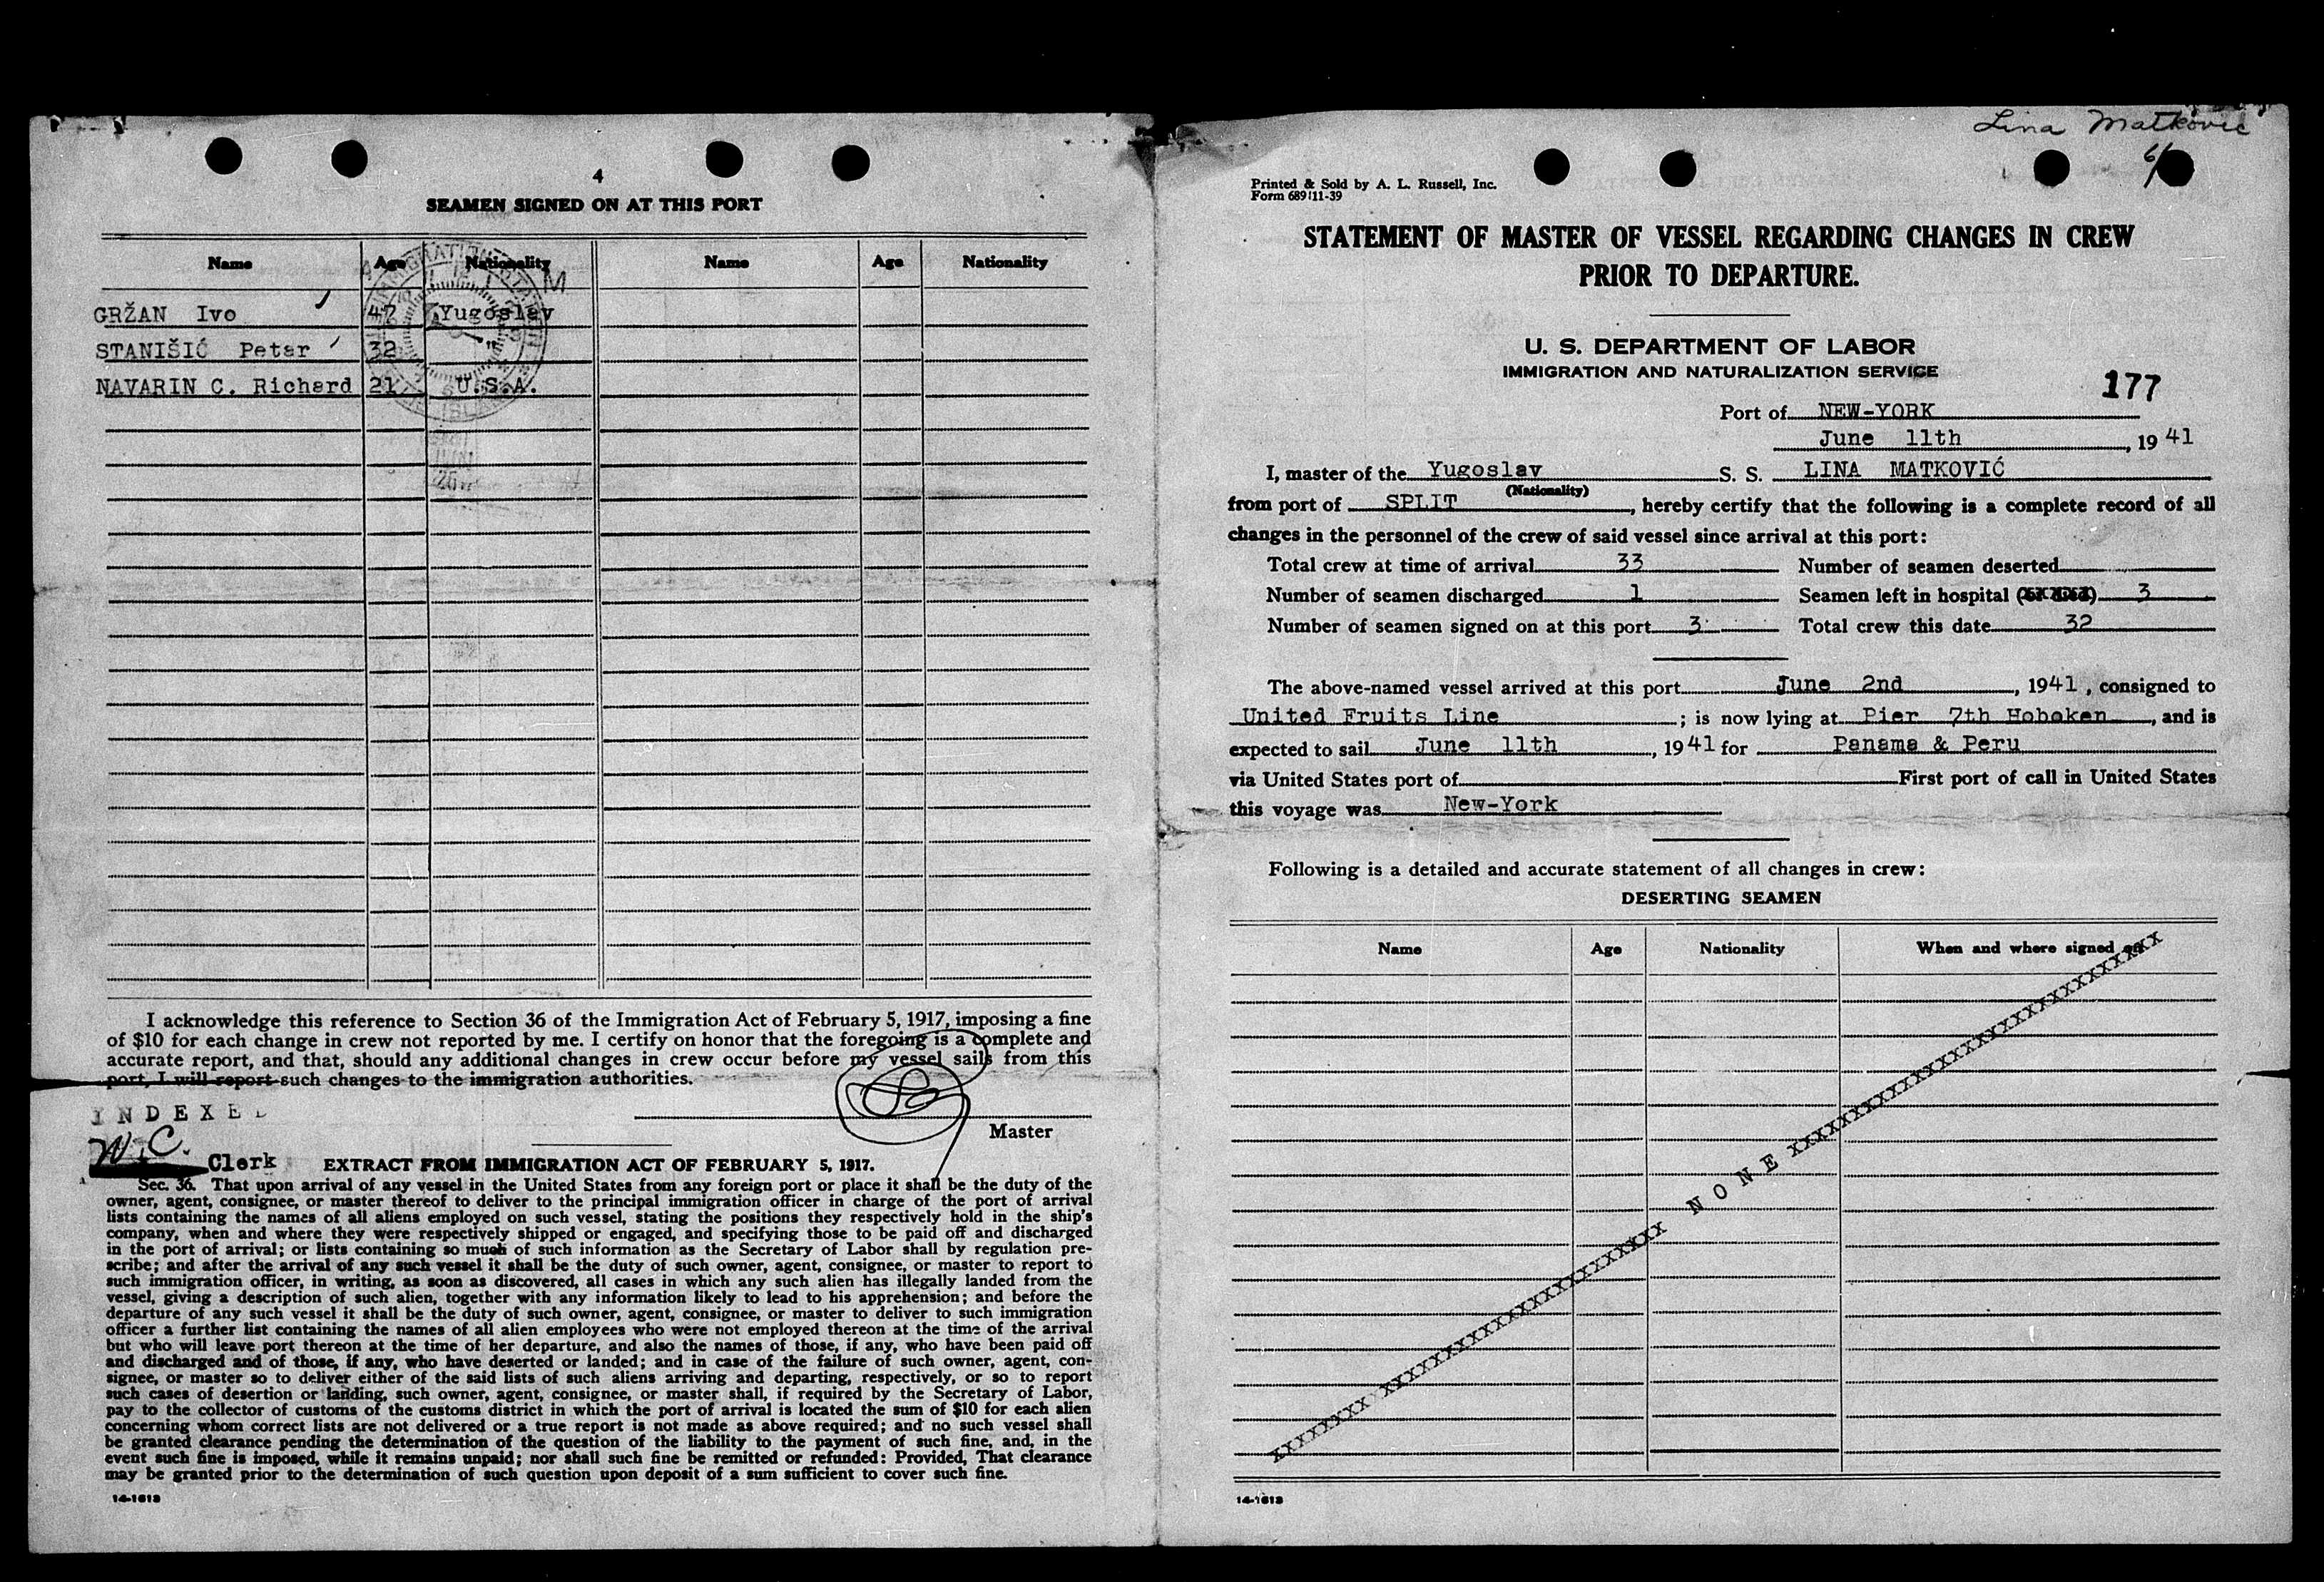 4
SEAMEN SIGNED ON AT THIS PORT
Name Age Nationality Name Age Nationality
GRŽAN Ivo 47 Yugoslav
STANIŠIĆ Petar 32
NAVARIN C. Richard 21 U.S.A.
I acknowledge this reference to Section 36 of the Immigration Act of February 5, 1917, imposing a fine
of $10 for each change in crew not reported by me. I certify on honor that the foregoing is a complete and
accurate report, and that, should any additional changes in crew occur before my vessel sails from this
port, I will report such changes to the immigration authorities.
INDEXED
Master
W.C. Clerk
EXTRACT FROM IMMIGRATION ACT OF FEBRUARY 5, 1917.
Sec. 36. That upon arrival of any vessel in the United States from any foreign port or place it shall be the duty of the
owner, agent, consignee, or master thereof to deliver to the principal immigration officer in charge of the port of arrival
lists containing the names of all aliens employed on such vessel, stating the positions they respectively hold in the ship's
company, when and where they were respectively shipped or engaged, and specifying those to be paid off and discharged
in the port of arrival; or lists containing so much of such information as the Secretary of Labor shall by regulation pre-
scribe; and after the arrival of any such vessel it shall be the duty of such owner, agent, consignee, or master to report to
such immigration officer, in writing, as soon as discovered, all cases in which any such alien has illegally landed from the
vessel, giving a description of such alien, together with any information likely to lead to his apprehension; and before the
departure of any such vessel it shall be the duty of such owner, agent, consignee, or master to deliver to such immigration
officer a further list containing the names of all alien employees who were not employed thereon at the time of the arrival
but who will leave port thereon at the time of her departure, and also the names of those, if any, who have been paid off
and discharged and of those, if any, who have deserted or landed; and in case of the failure of such owner, agent, con-
signee, or master so to deliver either of the said lists of such aliens arriving and departing, respectively, or so to report
such cases of desertion or landing, such owner, agent, consignee, or master shall, if required by the Secretary of Labor,
pay to the collector of customs of the customs district in which the port of arrival is located the sum of $10 for each alien
concerning whom correct lists are not delivered or a true report is not made as above required; and no such vessel shall
be granted clearance pending the determination of the question of the liability to the payment of such fine, and, in the
event such fine is imposed, while it remains unpaid; nor shall such fine be remitted or refunded: Provided, That clearance
may be granted prior to the determination of such question upon deposit of a sum sufficient to cover such fine.
14-1613
Lina Matkovic
6/
Printed & Sold by A. L. Russell, Inc.
Form 689 11-39
STATEMENT OF MASTER OF VESSEL REGARDING CHANGES IN CREW
PRIOR TO DEPARTURE.
U. S. DEPARTMENT OF LABOR
IMMIGRATION AND NATURALIZATION SERVICE
177
Port of NEW-YORK
June 11th, 19 41
I, master of the Yugoslav S. S. LINA MATKOVIĆ
(Nationality)
from port of SPLIT, hereby certify that the following is a complete record of all
changes in the personnel of the crew of said vessel since arrival at this port:
Total crew at time of arrival 33 Number of seamen deserted
Number of seamen discharged 1 Seamen left in hospital (or died) 3
Number of seamen signed on at this port 3 Total crew this date 32
The above-named vessel arrived at this port June 2nd, 1941, consigned to
United Fruits Line; is now lying at Pier 7th Hoboken, and is
expected to sail June 11th, 19 41 for Panama & Peru
via United States port of First port of call in United States
this voyage was New-York
Following is a detailed and accurate statement of all changes in crew:
DESERTING SEAMEN
Name Age Nationality When and where signed on
NONE
14-1613